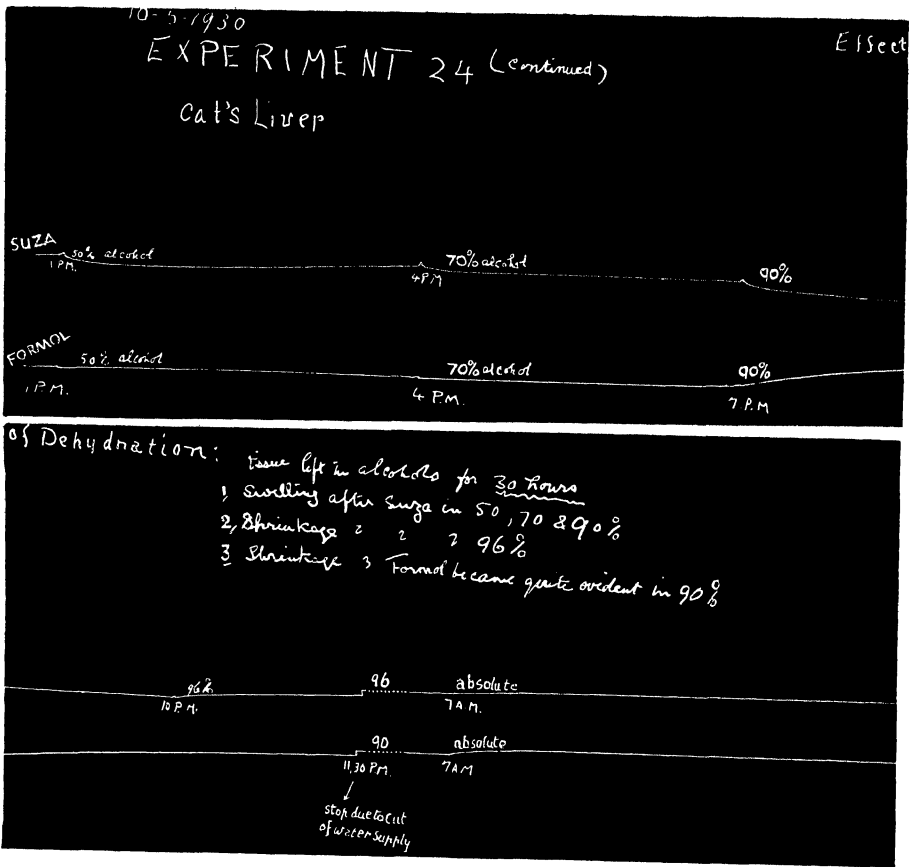 10-5-1930
Effect
EXPERIMENT 24 (continued)
Cat's Liver
SUZA 50% alcohol 70% alcohol 90%
1 P.M. 4 P.M
FORMOL 50% alcohol 70% alcohol 90%
1 P.M. 4 P.M. 7 P.M
of Dehydration:
tissue left in alcohols for 30 hours
1, Swelling after Suza in 50, 70 & 90%
2, Shrinkage " " " 96%
3 Shrinkage " Formol became quite evident in 90%
96% 96 absolute
10 P.M. 7 A.M.
90 absolute
11,30 P.M. 7 AM
stop due to cut
of water supply